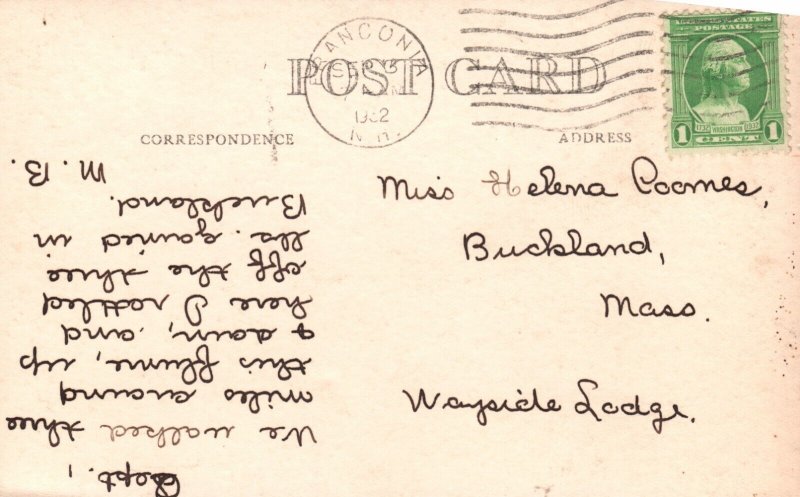 POST CARD
CORRESPONDENCE
ADDRESS
FRANCONIA
SEP
1932
N.H.
UNITED STATES
POSTAGE
1732 WASHINGTON 1932
1 CENT 1
Miss Helena Coomes,
Buckland,
Mass.
Wayside Lodge.
Sept.,
We walked three
miles around
this flume, up
& down, and
here I rattled
off the three
lbs. gained in
Buckland.
M. B.